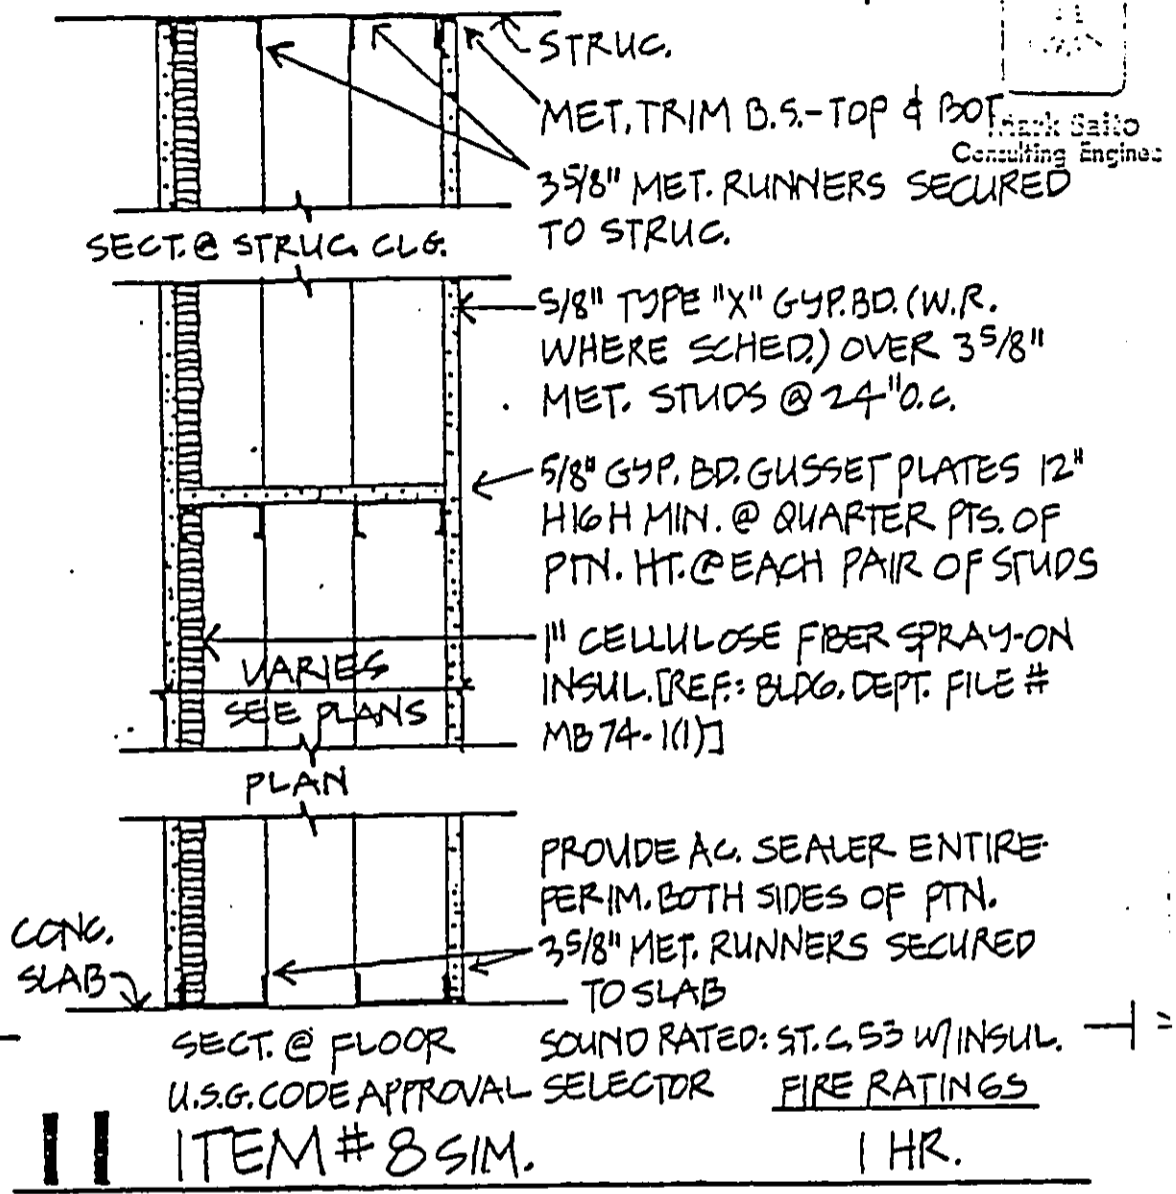 STRUC.
MET. TRIM B.S.-TOP & BOT.
Mark Saito
Consulting Enginee
3 5/8" MET. RUNNERS SECURED
TO STRUC.
SECT. @ STRUC. CLG.
5/8" TYPE "X" GYP. BD. (W.R.
WHERE SCHED.) OVER 3 5/8"
MET. STUDS @ 24" O.C.
5/8" GYP. BD. GUSSET PLATES 12"
HIGH MIN. @ QUARTER PTS. OF
PTN. HT. @ EACH PAIR OF STUDS
1" CELLULOSE FIBER SPRAY-ON
INSUL. [REF.: BLDG. DEPT. FILE #
MB 74-1(1)]
VARIES
SEE PLANS
PLAN
PROVIDE AC. SEALER ENTIRE
PERIM. BOTH SIDES OF PTN.
3 5/8" MET. RUNNERS SECURED
TO SLAB
CONC.
SLAB
SECT. @ FLOOR
SOUND RATED: S.T.C. 53 W/INSUL.
U.S.G. CODE APPROVAL SELECTOR
FIRE RATINGS
11
ITEM # 8 SIM.
1 HR.